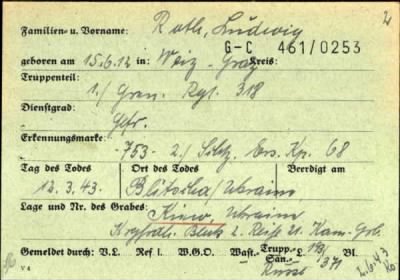 2
Familien- u. Vorname: Roth, Ludwig
G-C 461/0253
geboren am 15.6.12 in: Weiz - Graz Kreis:
Truppenteil:
1./ Gren. Rgt. 318
Dienstgrad:
Gefr.
Erkennungsmarke:
-753- 2./ Ers. Kp. 68
Tag des Todes Ort des Todes Beerdigt am
12.3.43. Ukraine
Lage und Nr. des Grabes: Kiew, Ukraine
Block 2. Reihe
Gemeldet durch: V.L. Ref I. W.G.O. Wast.- Trupp.- L. Bl.
San.-
371
2.6.43
V 4